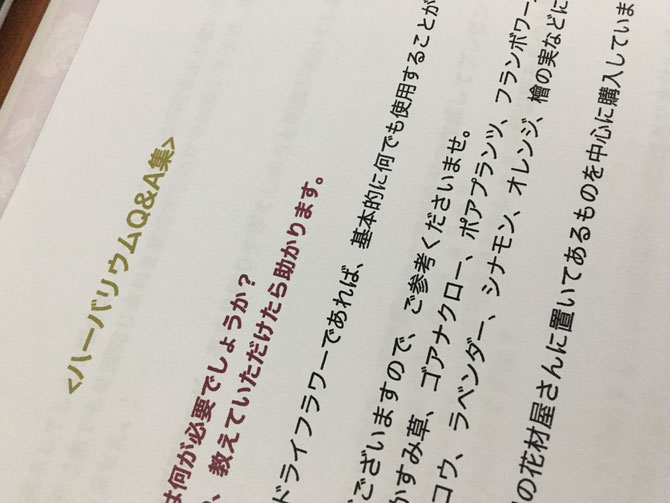 <ハーバリウムQ&A集>
は何が必要でしょうか?
、教えていただけたら助かります。
ドライフラワーであれば、基本的に何でも使用することが
ございますので、ご参考くださいませ。
かすみ草、ゴアナクロー、ポアプランツ、フランボワー
コウ、ラベンダー、シナモン、オレンジ、檜の実などに
の花材屋さんに置いてあるものを中心に購入していま